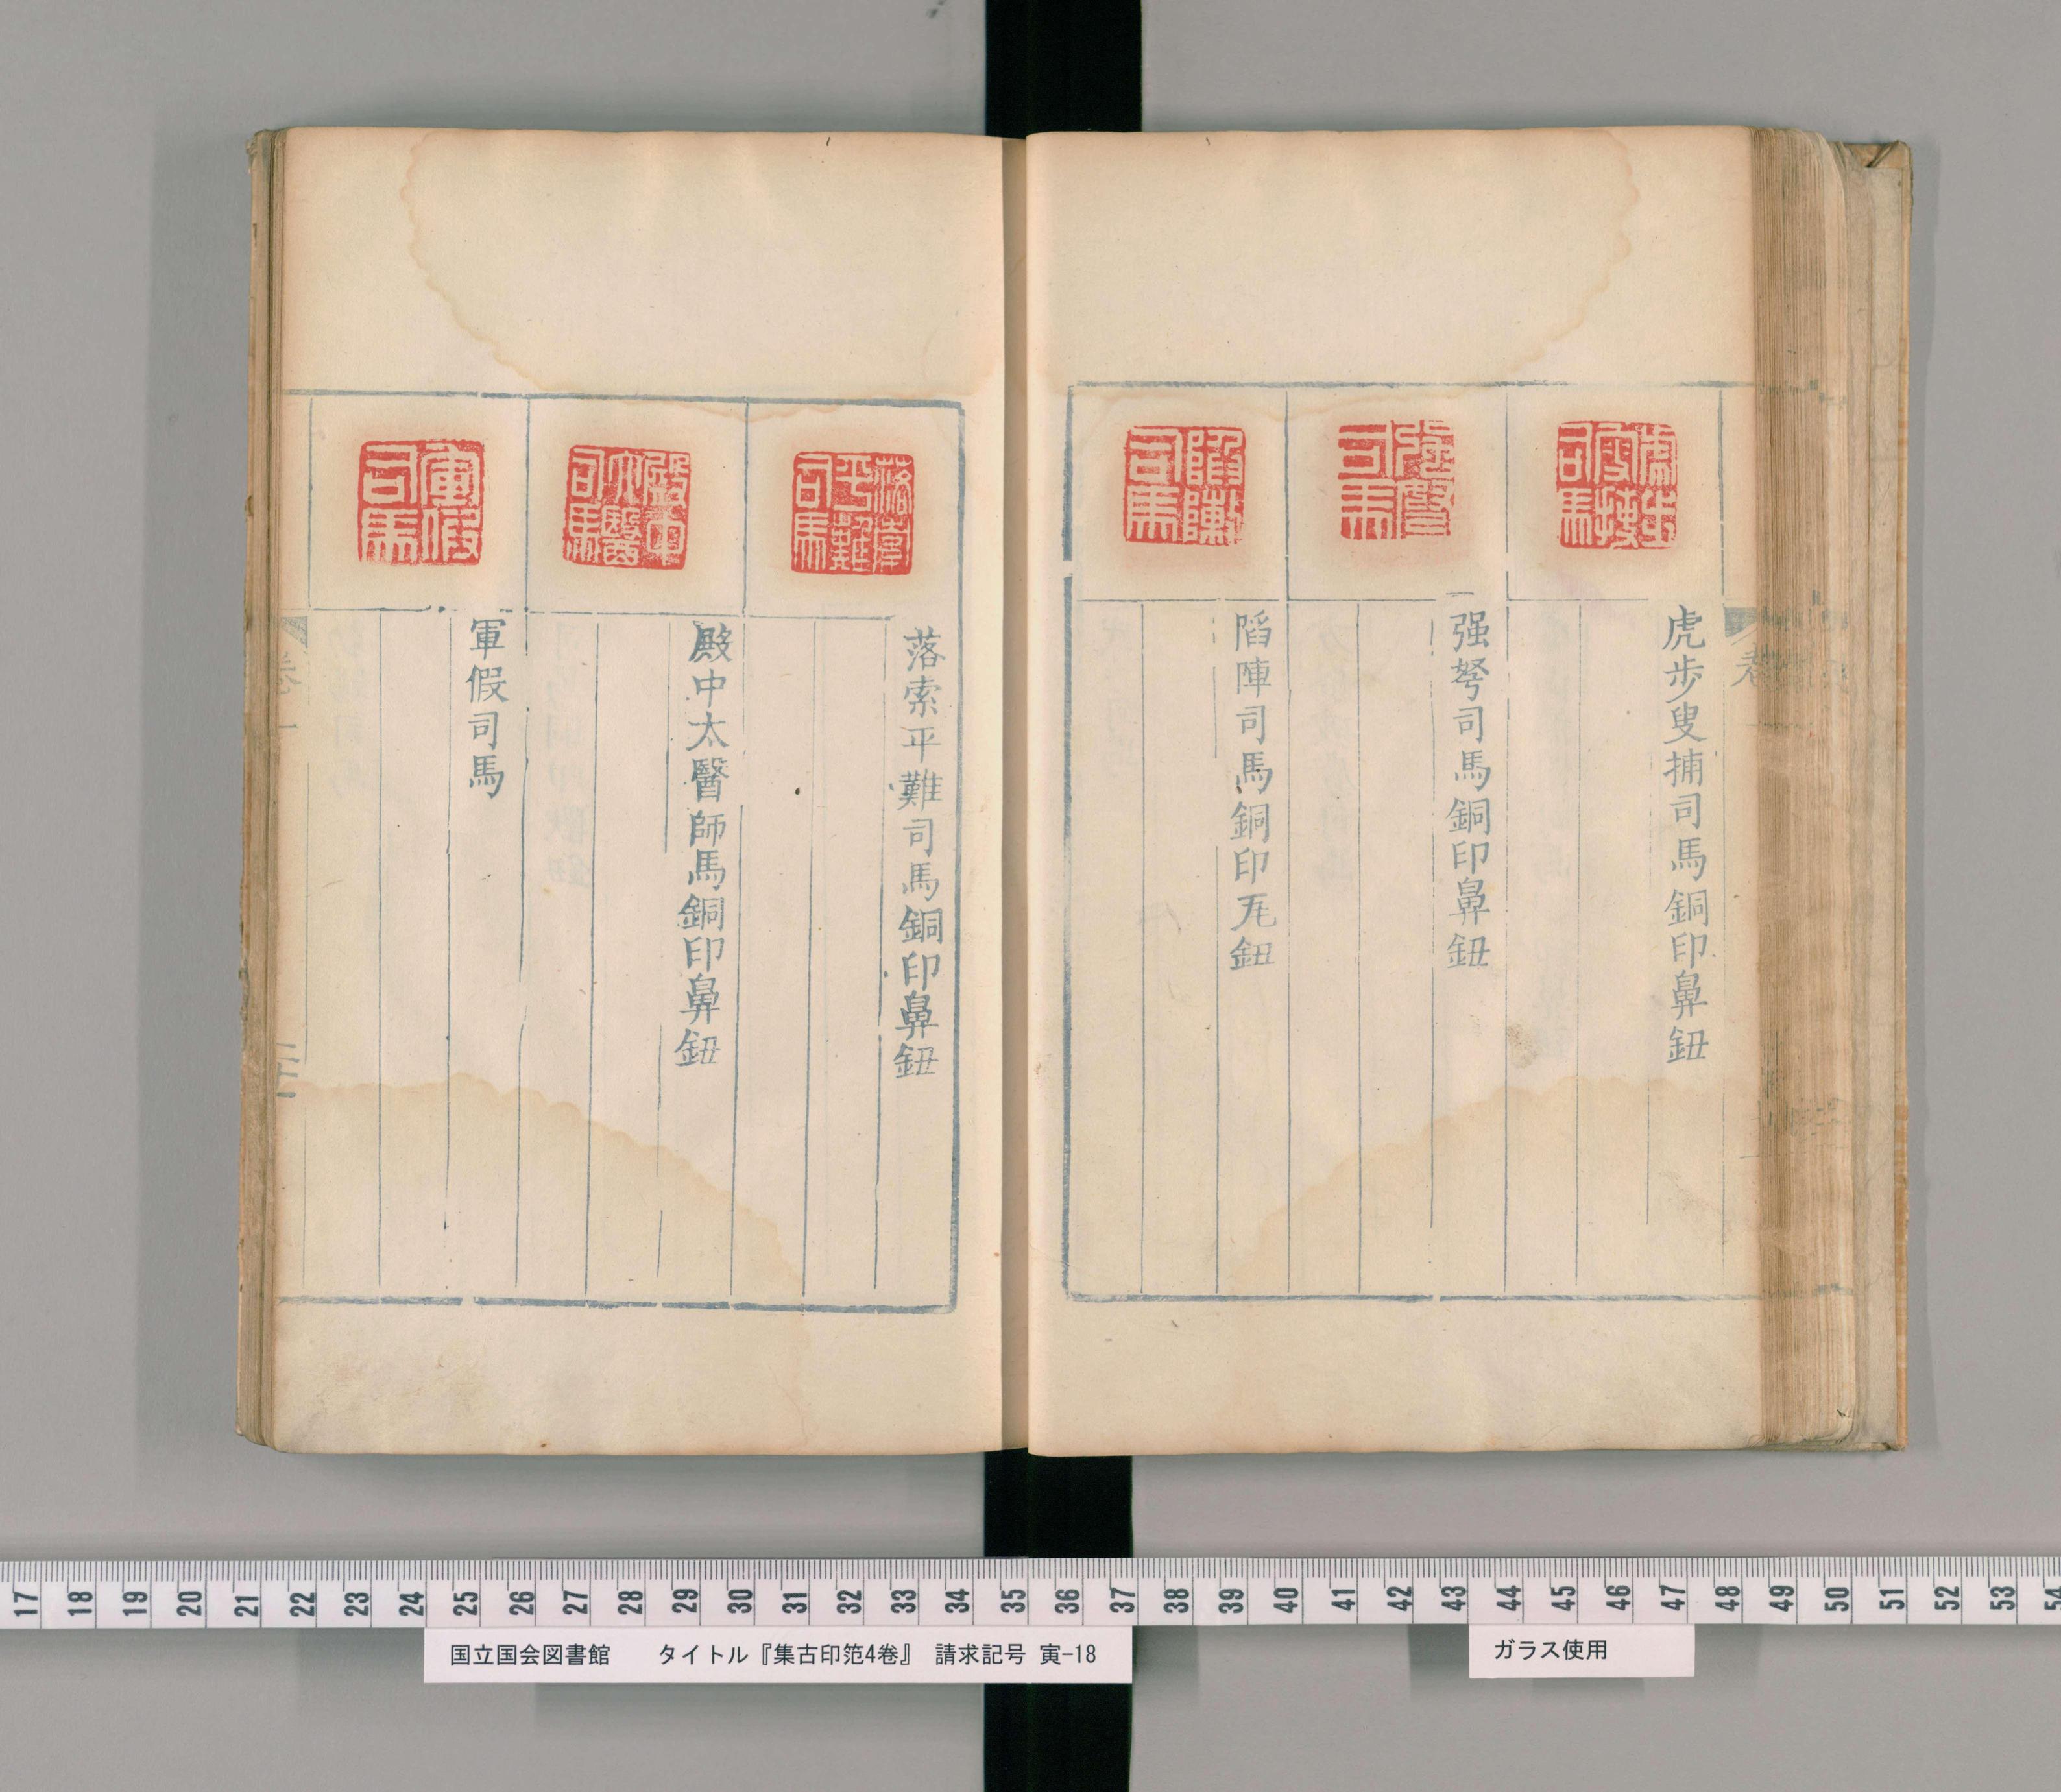 虎步叟捕司馬銅印鼻鈕
强弩司馬銅印鼻鈕
陷陣司馬銅印瓦鈕
落索平難司馬銅印鼻鈕
殿中太醫師馬銅印鼻鈕
軍假司馬
卷一
17 18 19 20 21 22 23 24 25 26 27 28 29 30 31 32 33 34 35 36 37 38 39 40 41 42 43 44 45 46 47 48 49 50 51 52 53 54
国立国会図書館 タイトル『集古印笵4巻』 請求記号 寅-18
ガラス使用